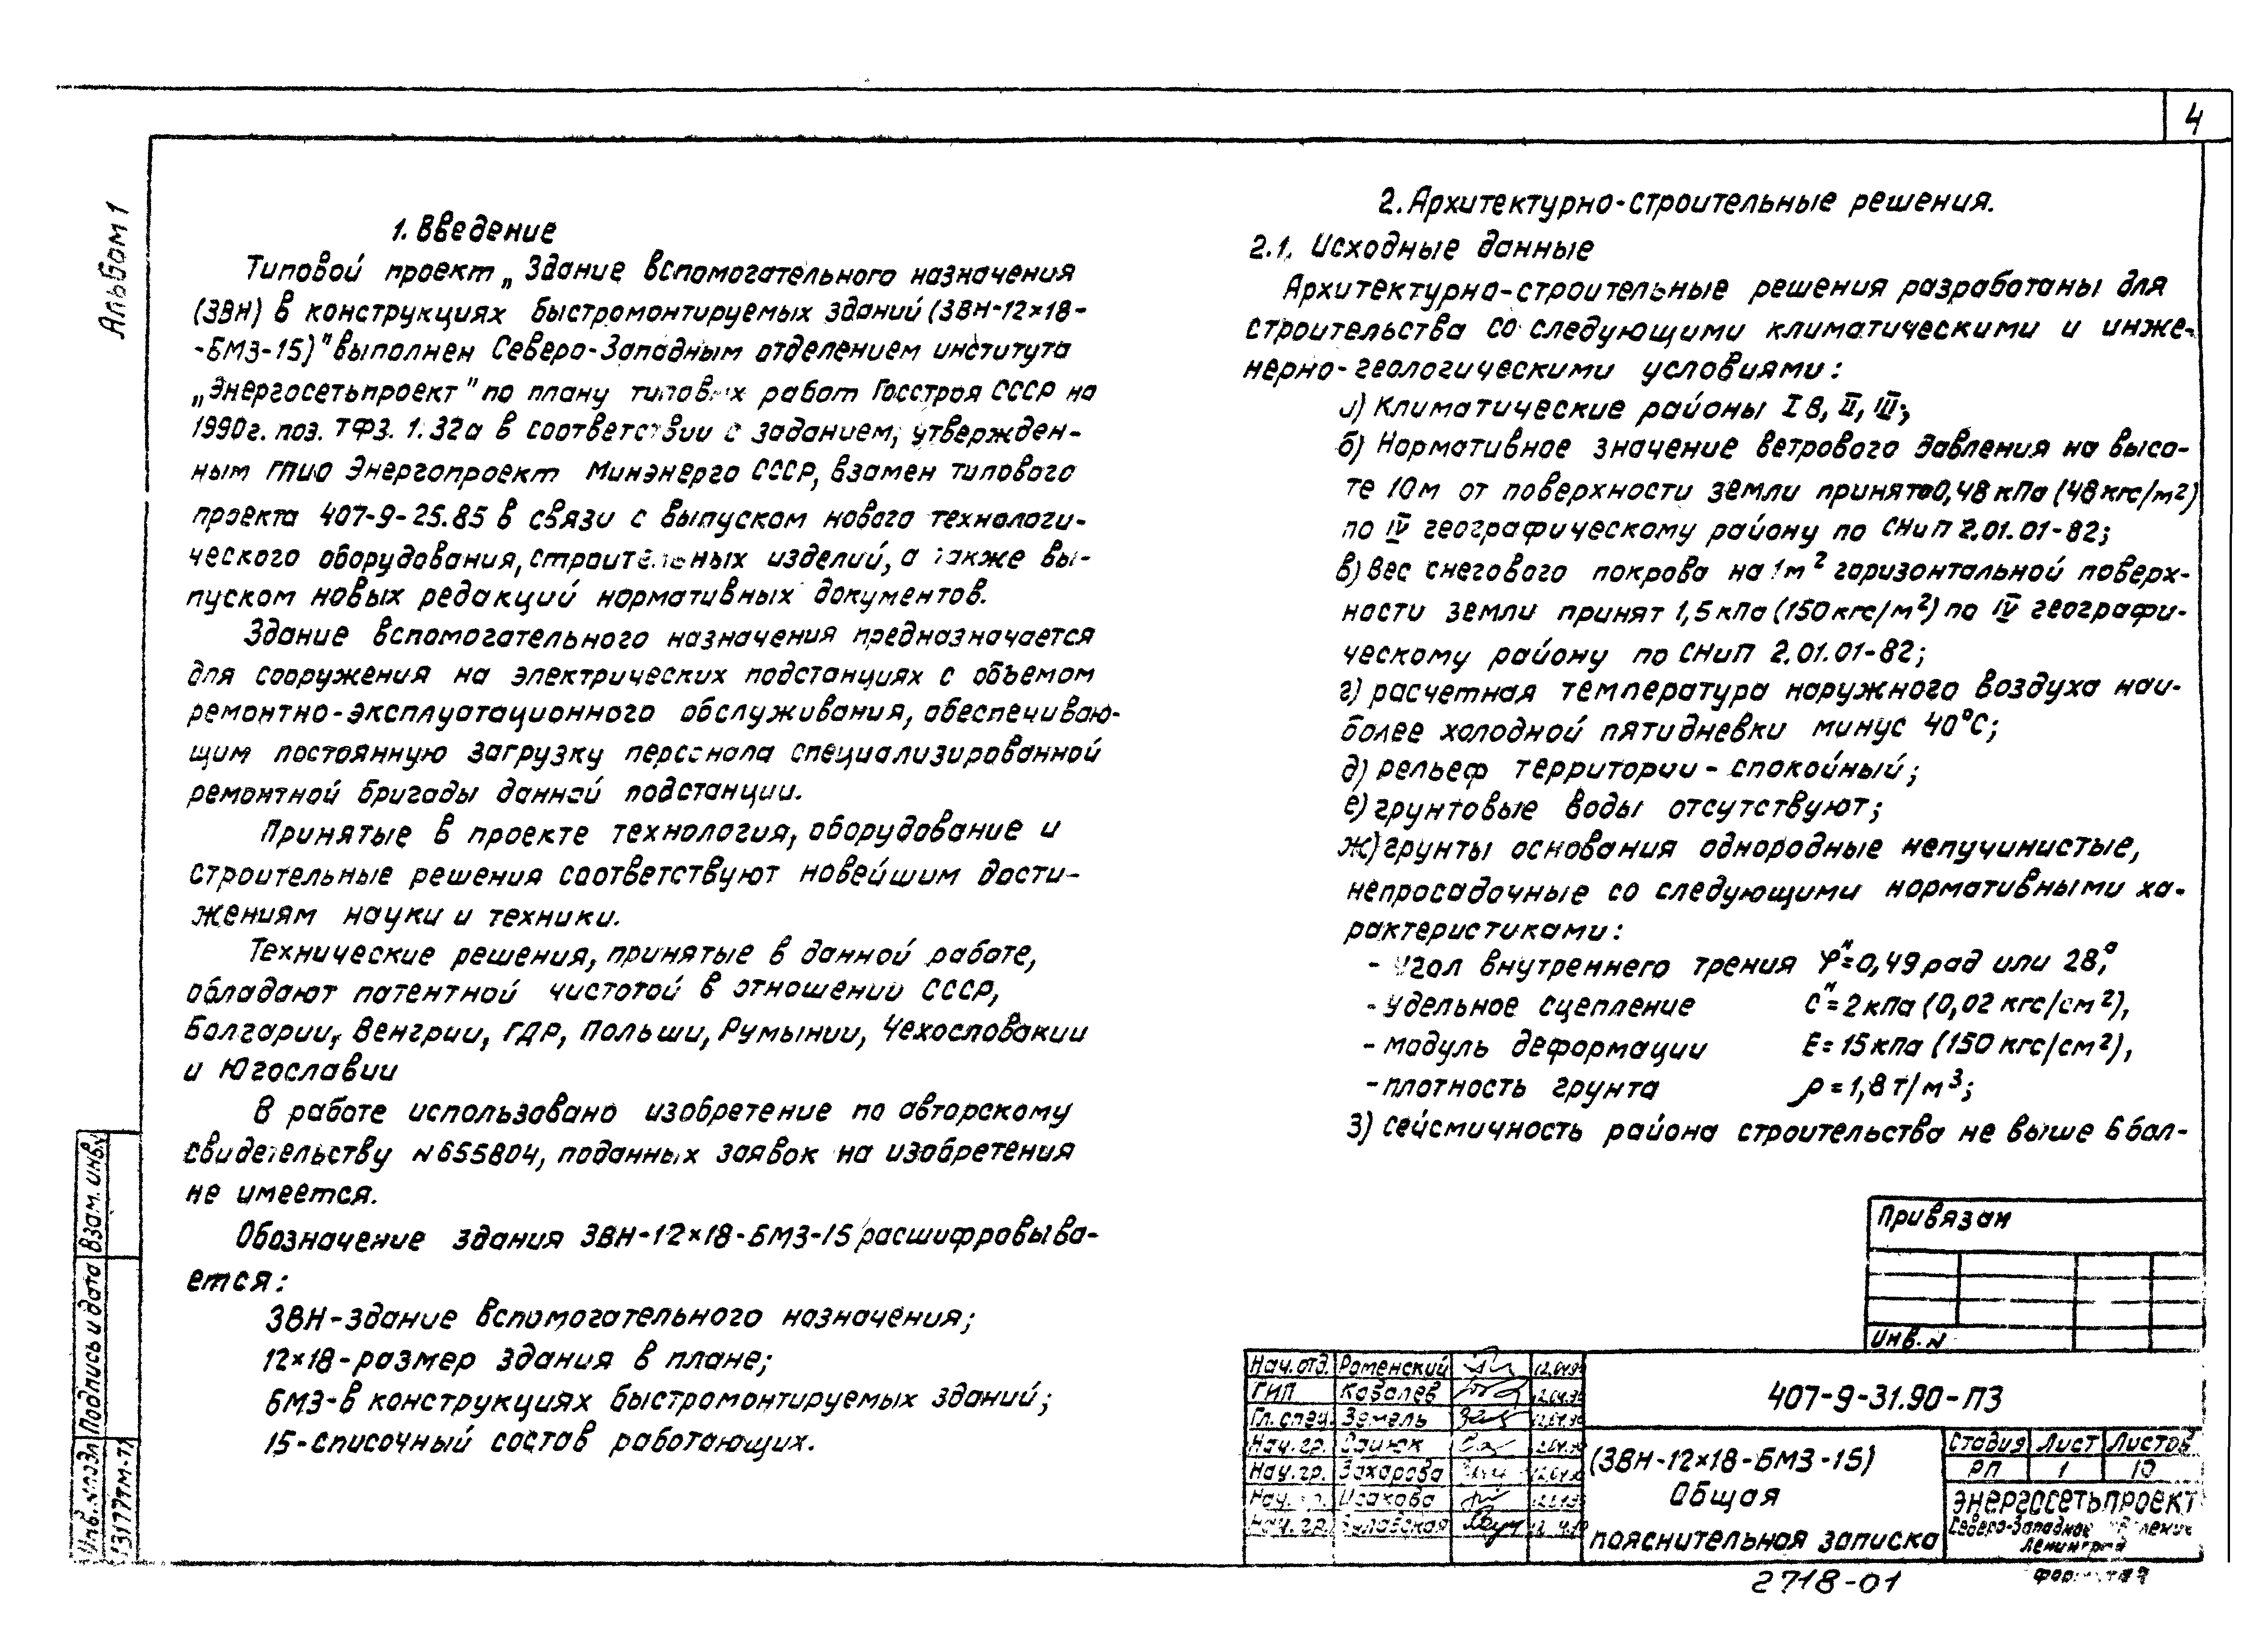 4
Альбом 1
1. Введение
Типовой проект „Здание вспомогательного назначения
(ЗВН) в конструкциях быстромонтируемых зданий (ЗВН-12×18-
-БМЗ-15)" выполнен Северо-Западным отделением института
„Энергосетьпроект" по плану типовых работ Госстроя СССР на
1990г. поз. ТФ3. 1.32а в соответствии с заданием, утвержден-
ным ГПИО Энергопроект Минэнерго СССР, взамен типового
проекта 407-9-25.85 в связи с выпуском нового технологи-
ческого оборудования, строительных изделий, а также вы-
пуском новых редакций нормативных документов.
Здание вспомогательного назначения предназначается
для сооружения на электрических подстанциях с объемом
ремонтно-эксплуатационного обслуживания, обеспечиваю-
щим постоянную загрузку персонала специализированной
ремонтной бригады данной подстанции.
Принятые в проекте технология, оборудование и
строительные решения соответствуют новейшим дости-
жениям науки и техники.
Технические решения, принятые в данной работе,
обладают патентной чистотой в отношении СССР,
Болгарии, Венгрии, ГДР, Польши, Румынии, Чехословакии
и Югославии
В работе использовано изобретение по авторскому
свидетельству N655804, поданных заявок на изобретения
не имеется.
Обозначение здания ЗВН-12×18-БМЗ-15 расшифровыва-
ется:
ЗВН-здание вспомогательного назначения;
12×18-размер здания в плане;
БМЗ-в конструкциях быстромонтируемых зданий;
15-списочный состав работающих.
2. Архитектурно-строительные решения.
2.1. Исходные данные
Архитектурно-строительные решения разработаны для
строительства со следующими климатическими и инже-
нерно-геологическими условиями:
а) Климатические районы IВ, II, III;
б) Нормативное значение ветрового давления на высо-
те 10м от поверхности земли принято 0,48 кПа (48 кгс/м²)
по IV географическому району по СНиП 2.01.01-82;
в) Вес снегового покрова на 1м² горизонтальной поверх-
ности земли принят 1,5 кПа (150 кгс/м²) по IV географи-
ческому району по СНиП 2.01.01-82;
г) расчетная температура наружного воздуха наи-
более холодной пятидневки минус 40°С;
д) рельеф территории - спокойный;
е) грунтовые воды отсутствуют;
ж) грунты основания однородные непучинистые,
непросадочные со следующими нормативными ха-
рактеристиками:
- угол внутреннего трения φᴴ=0,49 рад или 28°,
- удельное сцепление Сᴴ=2 кПа (0,02 кгс/см²),
- модуль деформации Е=15 кПа (150 кгс/см²),
- плотность грунта ρ=1,8 т/м³;
З) сейсмичность района строительства не выше 6 бал-
Привязан
Инв. N
Нач. отд. Роменский
ГИП Ковалев
Гл. спец. Земель
Нач. гр.
Нач. гр. Захарова
Нач. гр. Исакова
Нач. гр.
407-9-31.90-ПЗ
(ЗВН-12×18-БМЗ-15)
Общая
пояснительная записка
Стадия Лист Листов
РП 1 10
ЭНЕРГОСЕТЬПРОЕКТ
Северо-Западное отделение
Ленинград
2718-01
Взам. инв. N
Подпись и дата
Инв. N подл.
13177тм-т1